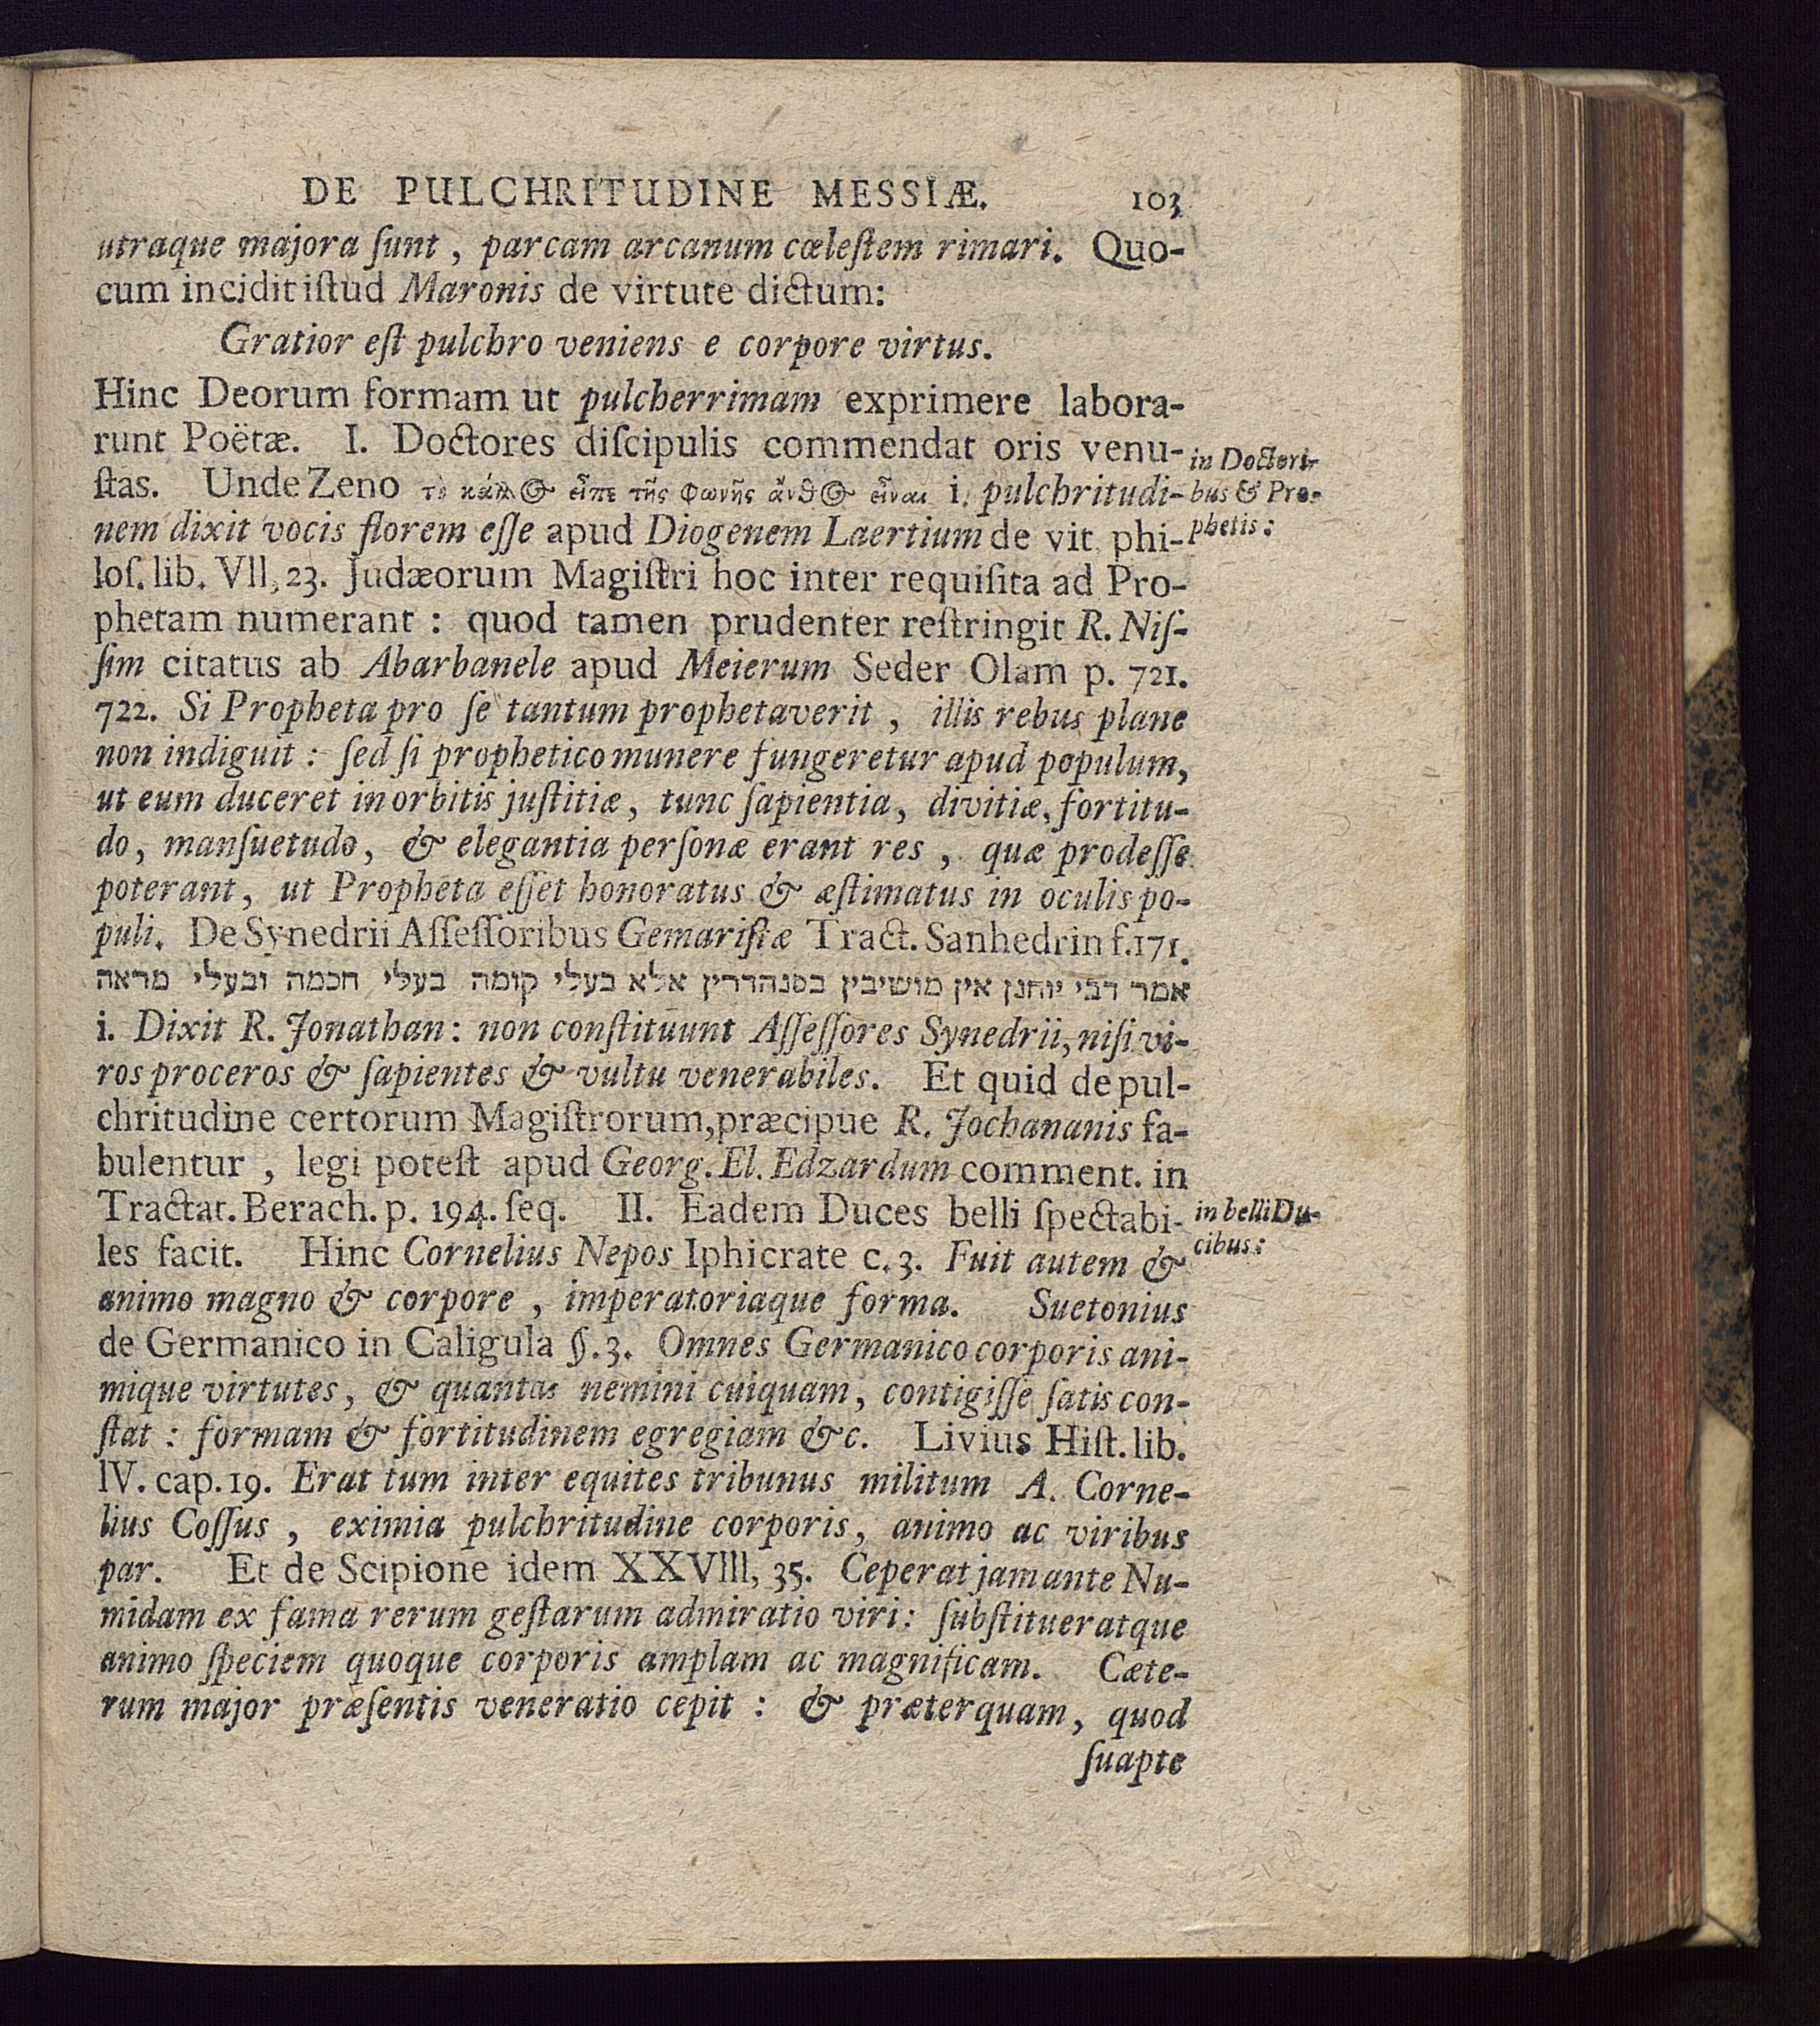 DE PULCHRITUDINE MESSIÆ. 103
utraque majora ſunt, parcam arcanum cœleſtem rimari. Quo-
cum incidit iſtud Maronis de virtute dictum:
Gratior eſt pulchro veniens e corpore virtus.
Hinc Deorum formam ut pulcherrimam exprimere labora-
runt Poëtæ. I. Doctores diſcipulis commendat oris venu-
ſtas. Unde Zeno τὸ κάλλ⊙ εἶπε τῆς φωνῆς ἄνθ⊙ εἶναι i. pulchritudi-
nem dixit vocis florem eſſe apud Diogenem Laertium de vit. phi-
loſ. lib. Vll, 23. Judæorum Magiſtri hoc inter requiſita ad Pro-
phetam numerant : quod tamen prudenter reſtringit R. Niſ-
ſim citatus ab Abarbanele apud Meierum Seder Olam p. 721.
722. Si Propheta pro ſe tantum prophetaverit, illis rebus plane
non indiguit : ſed ſi prophetico munere fungeretur apud populum,
ut eum duceret in orbitis juſtitiæ, tunc ſapientia, divitiæ, fortitu-
do, manſuetudo, & elegantia perſonæ erant res, quæ prodeſſe
poterant, ut Propheta eſſet honoratus & æſtimatus in oculis po-
puli. De Synedrii Aſſeſſoribus Gemariſtæ Tract. Sanhedrin f.171.
אמר רבי יוחנן אין מושיבין בסנהדרין אלא בעלי קומה בעלי חכמה ובעלי מראה
i. Dixit R. Jonathan: non conſtituunt Aſſeſſores Synedrii, niſi vi-
ros proceros & ſapientes & vultu venerabiles. Et quid de pul-
chritudine certorum Magiſtrorum, præcipue R. Jochananis fa-
bulentur, legi poteſt apud Georg. El. Edzardum comment. in
Tractat. Berach. p. 194. ſeq. II. Eadem Duces belli ſpectabi-
les facit. Hinc Cornelius Nepos Iphicrate c. 3. Fuit autem &
animo magno & corpore, imperatoriaque forma. Suetonius
de Germanico in Caligula §. 3. Omnes Germanico corporis ani-
mique virtutes, & quantas nemini cuiquam, contigiſſe ſatis con-
ſtat : formam & fortitudinem egregiam &c. Livius Hiſt. lib.
lV. cap. 19. Erat tum inter equites tribunus militum A. Corne-
lius Coſſus, eximia pulchritudine corporis, animo ac viribus
par. Et de Scipione idem XXVlll, 35. Ceperat jam ante Nu-
midam ex fama rerum geſtarum admiratio viri: ſubſtitueratque
animo ſpeciem quoque corporis amplam ac magnificam. Cæte-
rum major præſentis veneratio cepit : & præterquam, quod
ſuapte
in Doctori-
bus & Pro-
phetis:
in belli Du-
cibus: